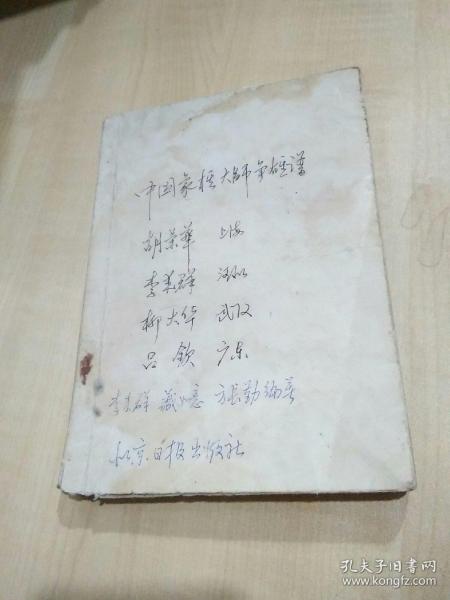 中国象棋大师争雄谱
胡荣华 上海
李来群 河北
柳大华 武汉
吕钦 广东
李来群 臧如意 方长勤 编著
北京日报出版社
孔夫子旧书网
www.kongfz.com